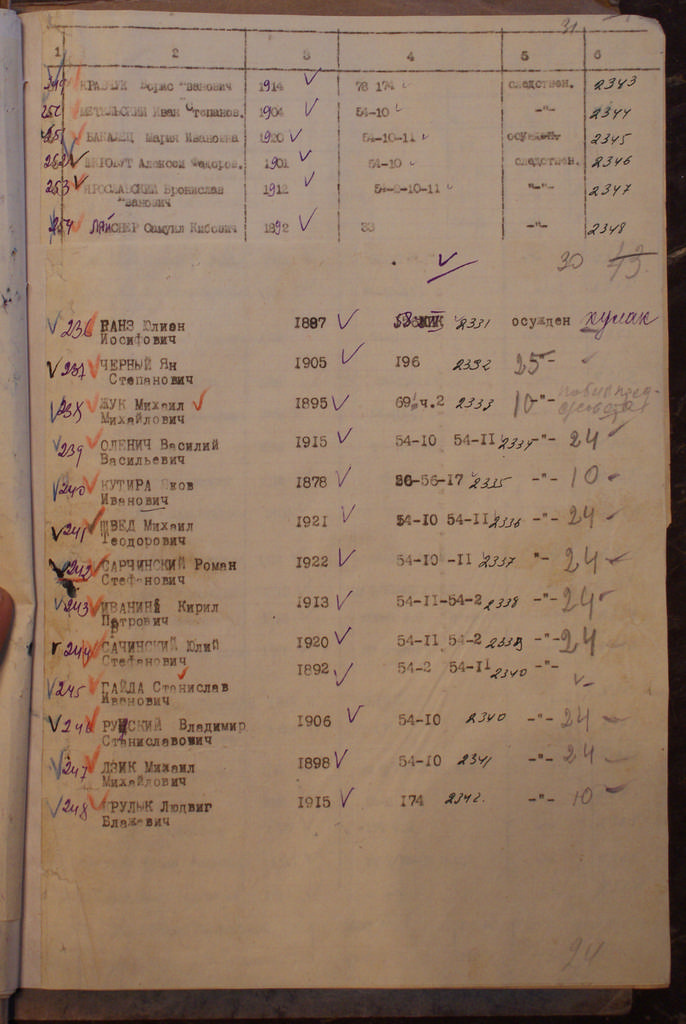 31
1 2 3 4 5 6
Борис Иванович 1914 78 174 следствен. 2343
Иван Степанов. 1904 54-10 -"- 2344
БАКАЛЕЦ Мария Ивановна 1920 54-10-11 2345
252 Алексей Федоров. 1901 54-10 следствен. 2346
253 ЯРОСЛАВСКИЙ Бронислав 1912 -"- 2347
Иванович
254 ЛАЙСНЕР Самуил 1892 33 -"- 2348
30 13.
236 ГАНЗ Юлиан 1887 2331 осужден кулак
Иосифович
237 ЧЕРНЫЙ Ян 1905 196 2332 25 -
Степанович
238 ЖУК Михаил 1895 69 ч.2 2333 10 -"-
Михайлович
239 ОЛЕНИЧ Василий 1915 54-10 54-11 2334 -"- 24
Васильевич
240 КУТИРА Яков 1878 -56-17 2335 -"- 10
Иванович
241 ШВЕД Михаил 1921 54-10 54-11 2336 -"- 24
Теодорович
242 САРЧИНСКИЙ Роман 1922 54-10 -11 2337 "- 24
Стефанович
243 Кирил 1913 54-11-54-2 2338 -"- 24
Петрович
244 САЧИНСКИЙ Юлий 1920 54-11 54-2 2339 -"- 24
Стефанович
1892 54-2 54-11 2340 -"-
245 ГАЙДА Станислав
Иванович
246 Владимир 1906 54-10 2340 -"- 24
Станиславович
247 ЛЗИК Михаил 1898 54-10 2341 -"- 24
Михайлович
248 Людвиг 1915 174 2342. -"- 10
Блажевич
24